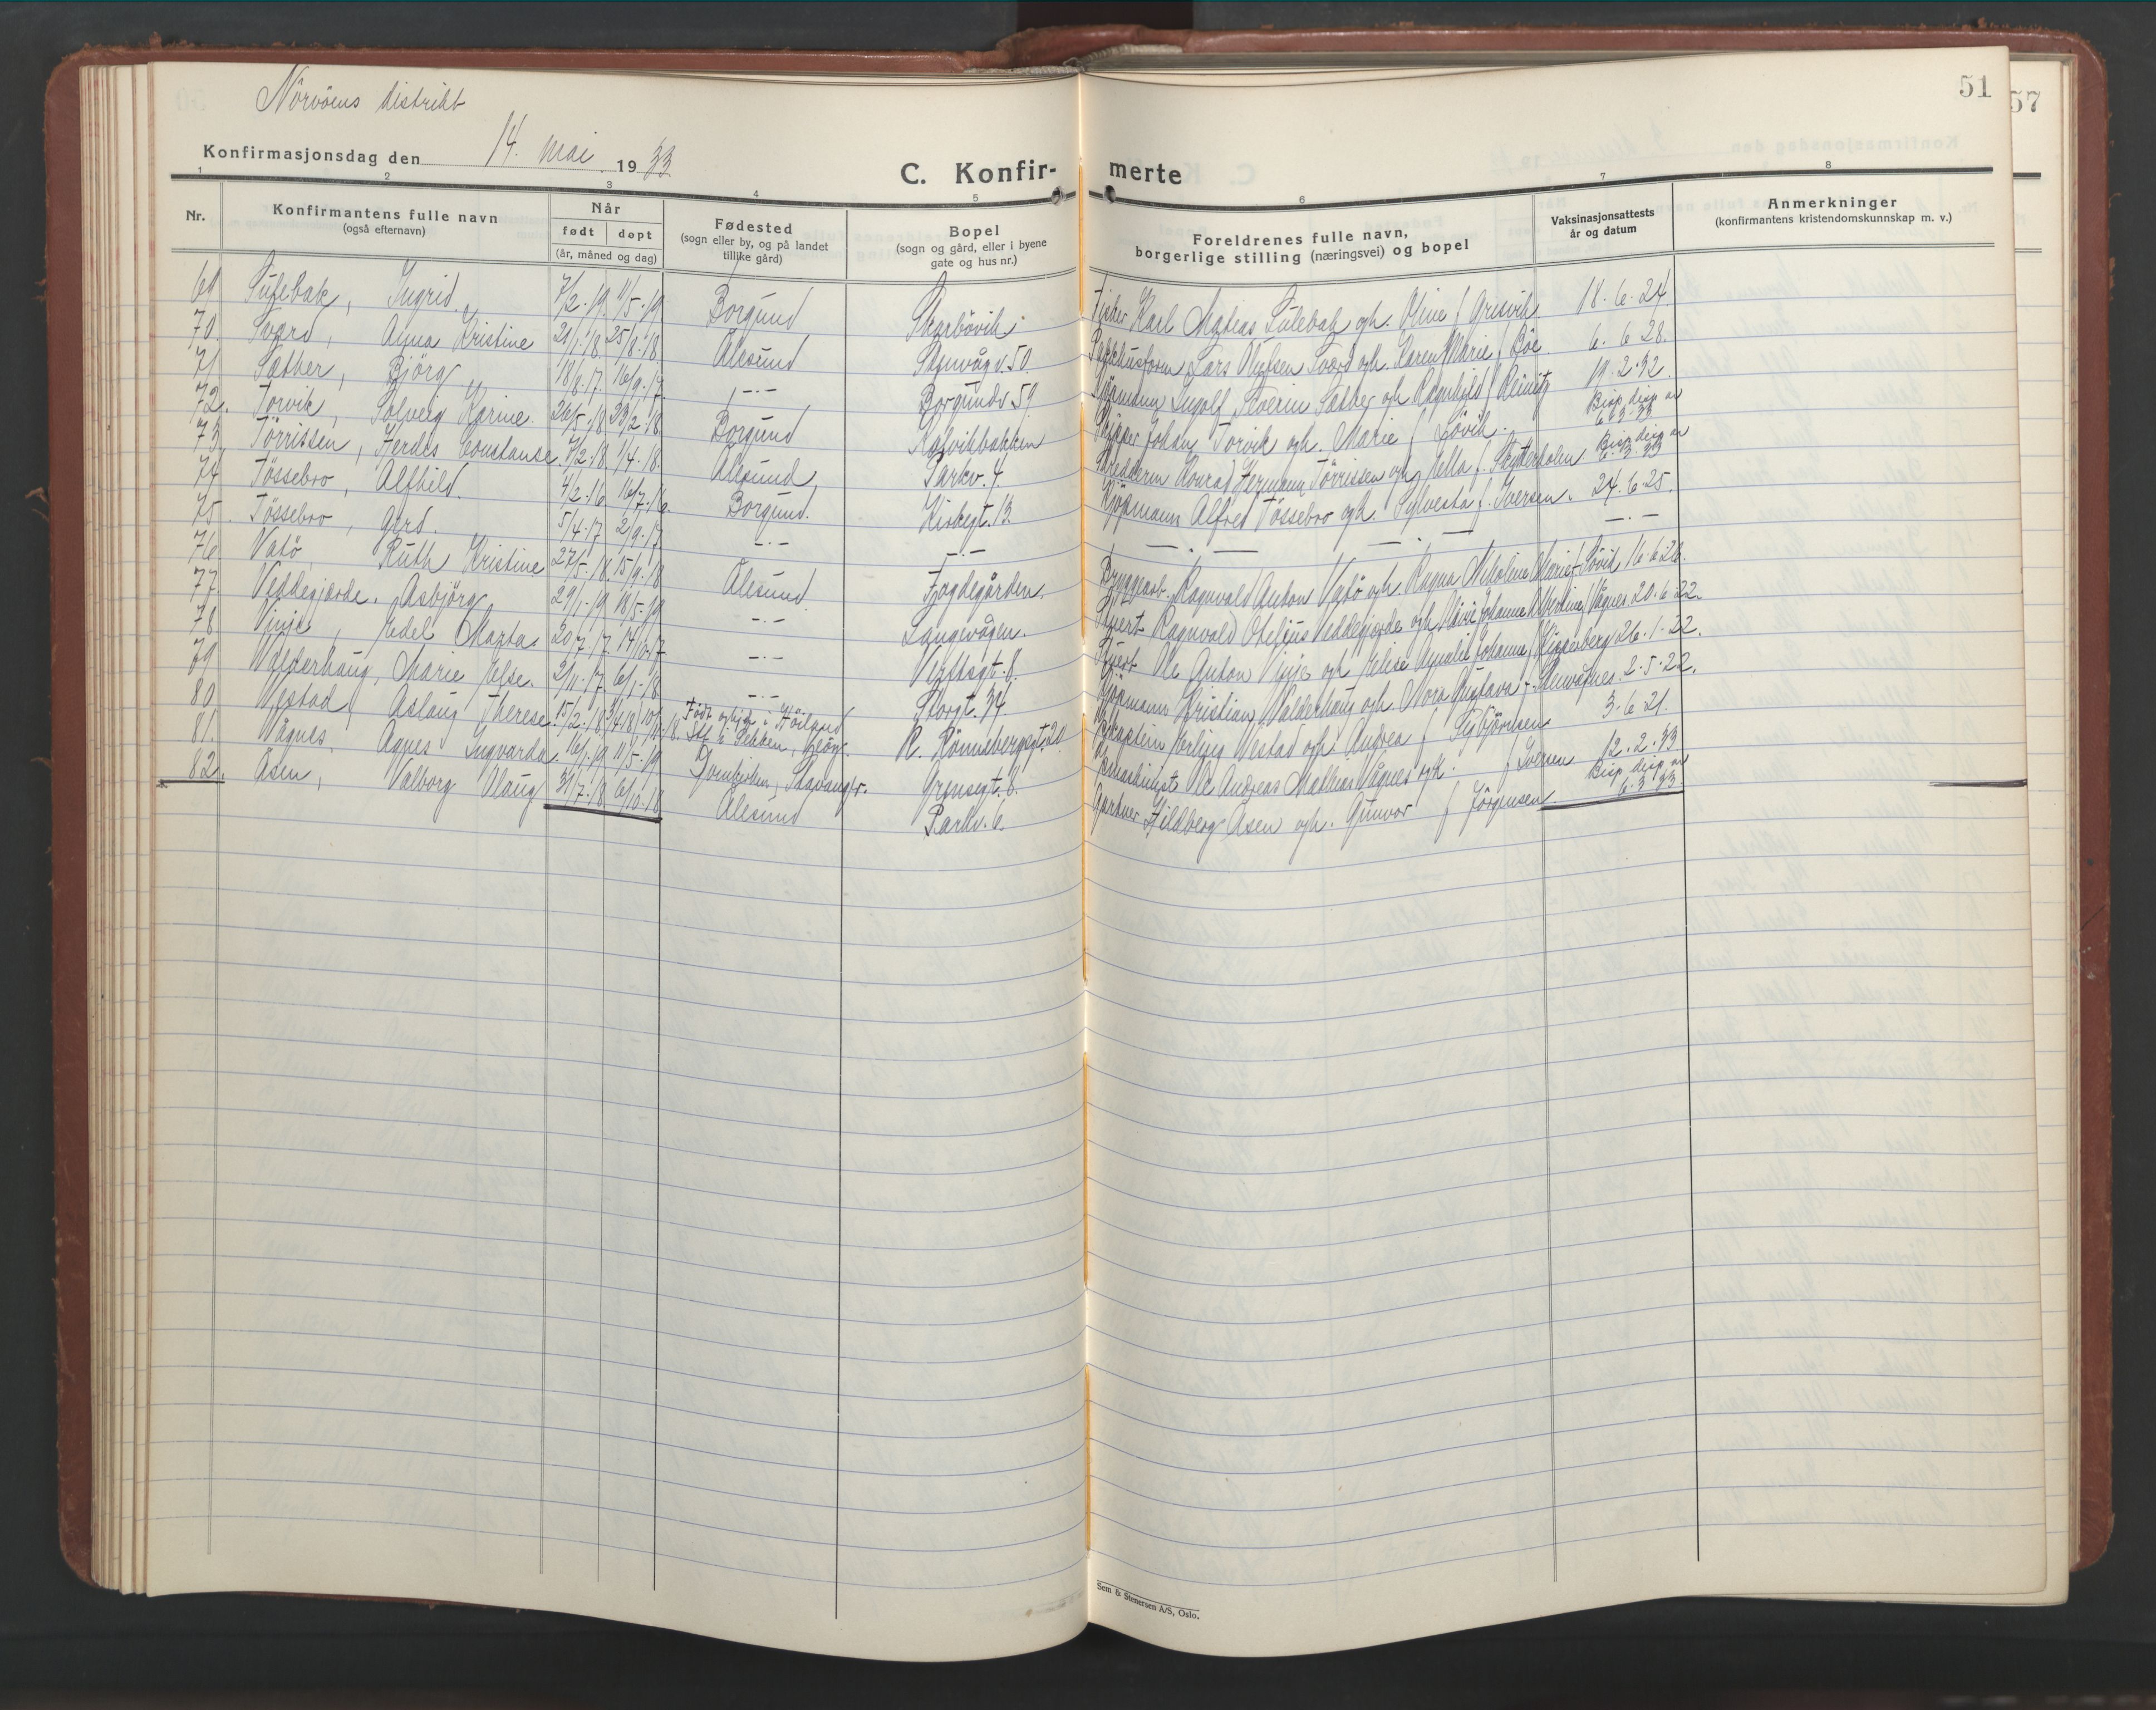 51
57
Nørvöens distrikt
Konfirmasjonsdag den 14. mai 1933
C. Konfirmerte
1 2 3 4 5 6 7 8
Nr. Konfirmantens fulle navn (også efternavn) Når født døpt (år, måned og dag) Fødested (sogn eller by, og på landet tillike gård) Bopel (sogn og gård, eller i byene gate og hus nr.) Foreldrenes fulle navn, borgerlige stilling (næringsvei) og bopel Vaksinasjonsattests år og datum Anmerkninger (konfirmantens kristendomskunnskap m. v.)
69 Sulebak, Ingrid. 7/2.19. 11/5.19 Borgund Skarbövik. Fisker Karl Mattias Sulebak og h. Oline f. Grisvik. 18.6.24.
70. Sværd, Alma Kristine 21/1.18. 25/8.18 Ålesund Stenvågv. 50. Lars sværd og h. Karen Marie f. Böe. 6.6.28.
71 Sæther, Björg 18/8.17. 16/9.17. —.— Borgundv. 59 Kjöpmann Ingolf Severin Sæther og h. Ragnhild f. Reinitz 19.2.32.
72. Torvik, Solveig Karine. 26/5.18. 23/2.18 Borgund Kalvikbakken Skipper Johan Torvik og h. Marie f. Lövik. Bisp. disp. av 6.3.33
73 Törrissen, Herdis Constance 7/2.18. 1/4.18. Ålesund Parkv. 7. Skredderm Konrad Hermann Törrissen og h. Hella f. Skytterholen Bisp. disp. av 6.3.33
74 Tössebro, Alfhild. 4/2.16. 16/7.16. Borgund. Kirkegt. 13. Kjöpmann Alfred Tössebro og h. Sylvesta f. Iversen. 24.6.25.
75. Tössebro, Gerd. 5/4.17 2/9.17. —.— —.— —.— —.— —.—
76 Vatö, Ruth Kristine 27/5.18. 15/9.18 Ålesund Fogdegården. Bryggearb. Ragnvald Anton Vatö og h. Ragna Nikoline Marie f. Lövik 16.6.26.
77 Veddegjerde, Asbjörg 29/1.19 18/5.19 —.— Langevågen. Ragnvald Otelius Veddegjerde og h. Johanna f. Vågnes 20.6.22.
78 Vinje, Edel Marta 20/7.17. 14/10.17 —.— Verftsgt. 8. Ole Anton Vinje og h. Helise Amalie Johanne f. Kipperberg 26.1.22.
79 Valderhaug, Marie Helse. 2/11.17. 6/1.18 —.— Storgt. 34 Kjöpmann Kristian Valderhaug og h. Nora Gustava f. 2.5.22.
80. Vestad, Aslaug Therese 15/2.18 Födt R. Rönnebergsgt. 20 Erling Vestad og h. Andrea f. Sigbjörnsen 3.6.21.
81. Vågnes, Agnes Ingvarda. 16/1.19 11/5.19 Domkirken, Stavanger. Grensegt. 8. Ole Andreas Mathias Vågnes og h. f. Iversen 12.2.33
82. Åsen, Valborg Olaug 31/7.18 6/10.18 Ålesund Parkv. 6. Gartner Hildberg Åsen og h. Gunvor f. Jörgensen. Bisp. disp. av 6.3.33.
Sem & Stenersen A/S, Oslo.